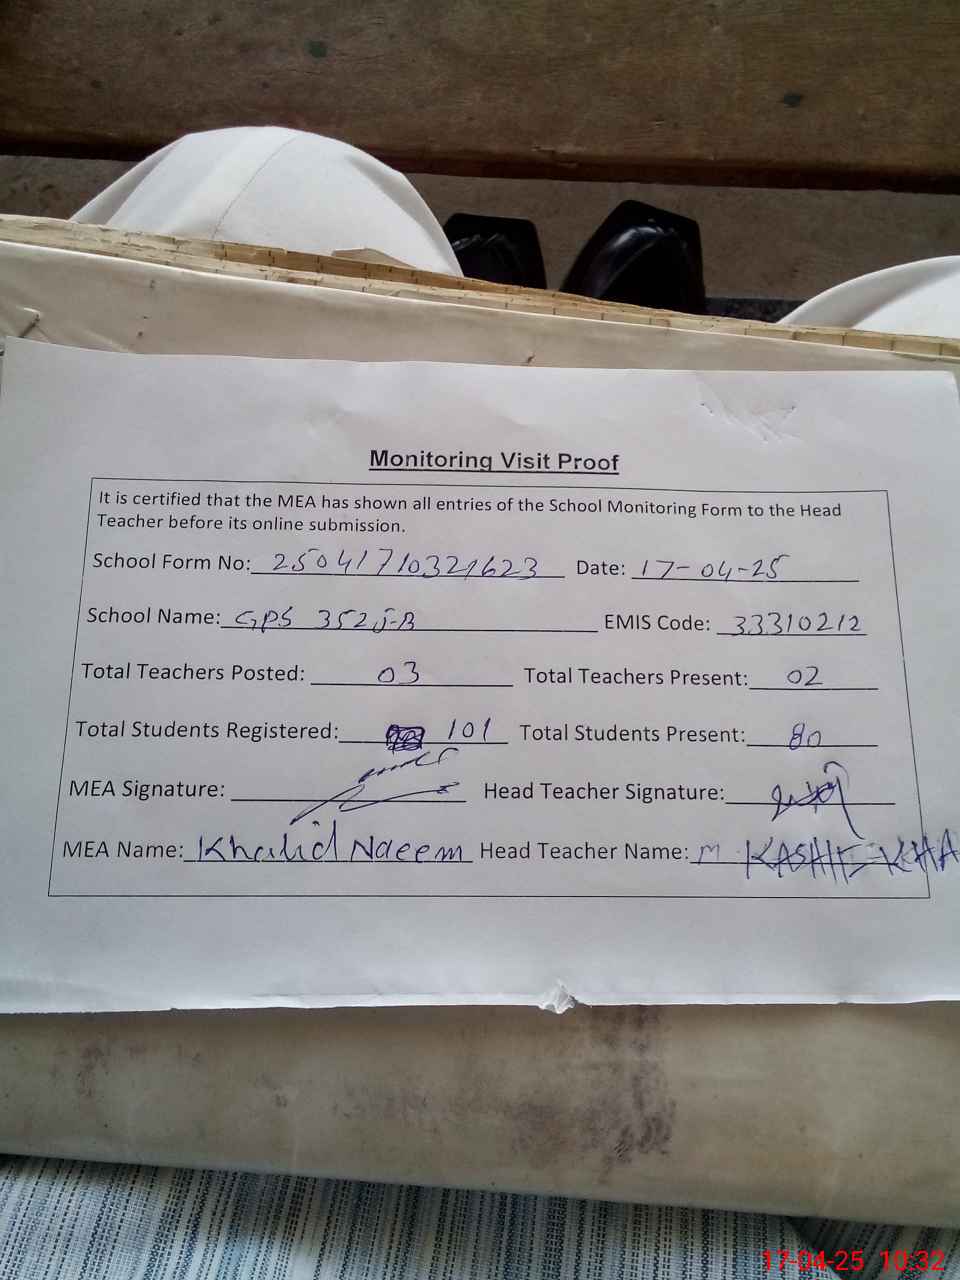 Monitoring Visit Proof
It is certified that the MEA has shown all entries of the School Monitoring Form to the Head
Teacher before its online submission.
School Form No: 25041710321623 Date: 17-04-25
School Name: GPS 352 J-B EMIS Code: 33310212
Total Teachers Posted: 03 Total Teachers Present: 02
Total Students Registered: 101 Total Students Present: 80
MEA Signature: Head Teacher Signature:
MEA Name: Khalid Naeem Head Teacher Name: M KASHIF KHA
17-04-25 10:32